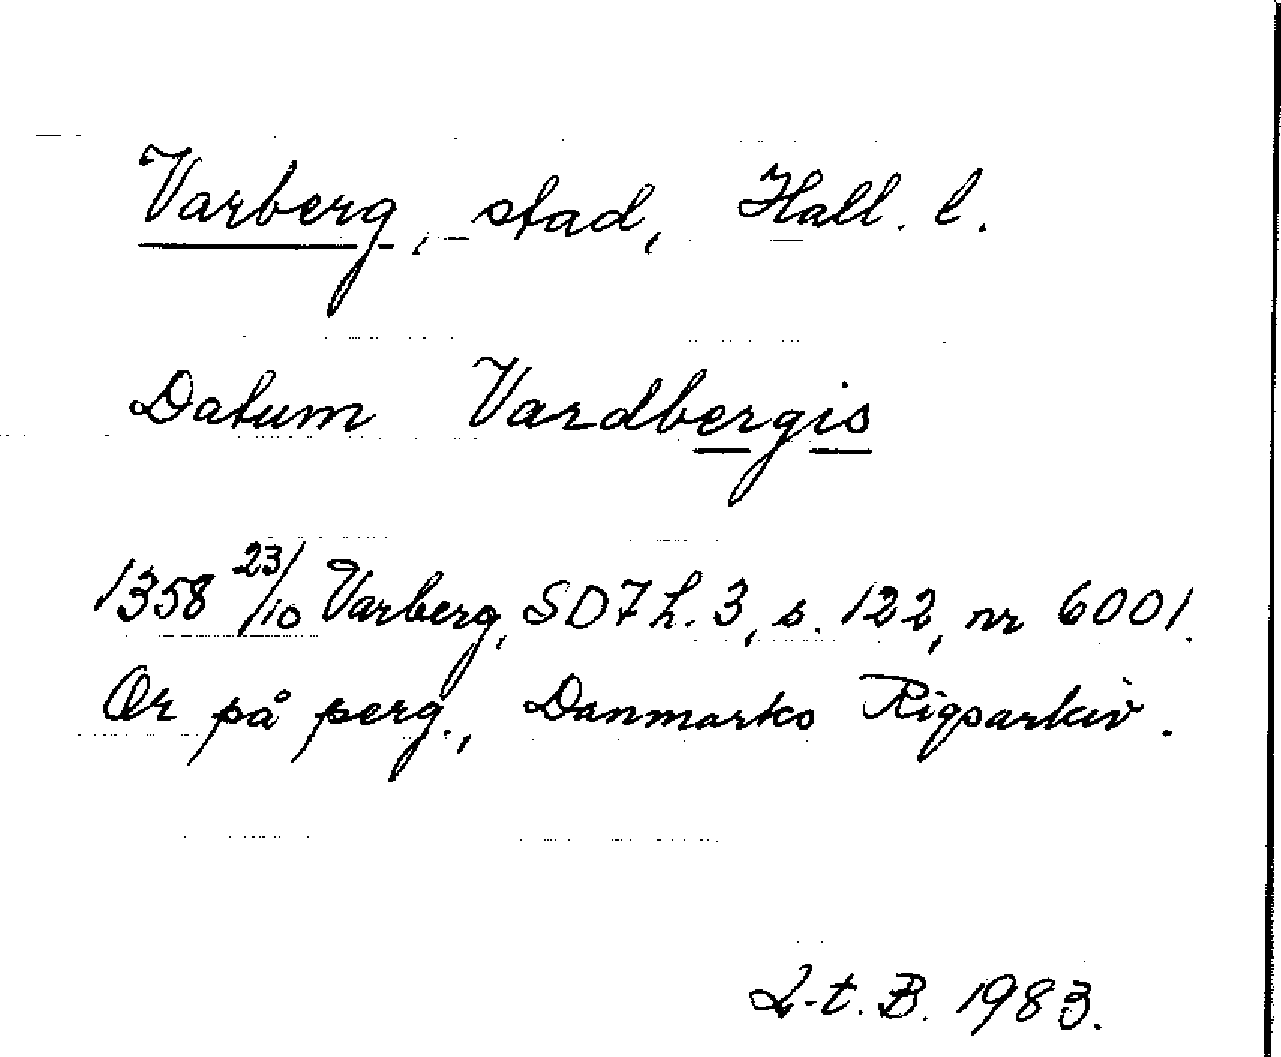 Varberg, stad, Hall. l.
Datum Vardbergis
1358 23/10 Varberg, SD7 h. 3, s. 122, nr 6001.
Or på perg., Danmarks Rigsarkiv.
L-t. B. 1983.